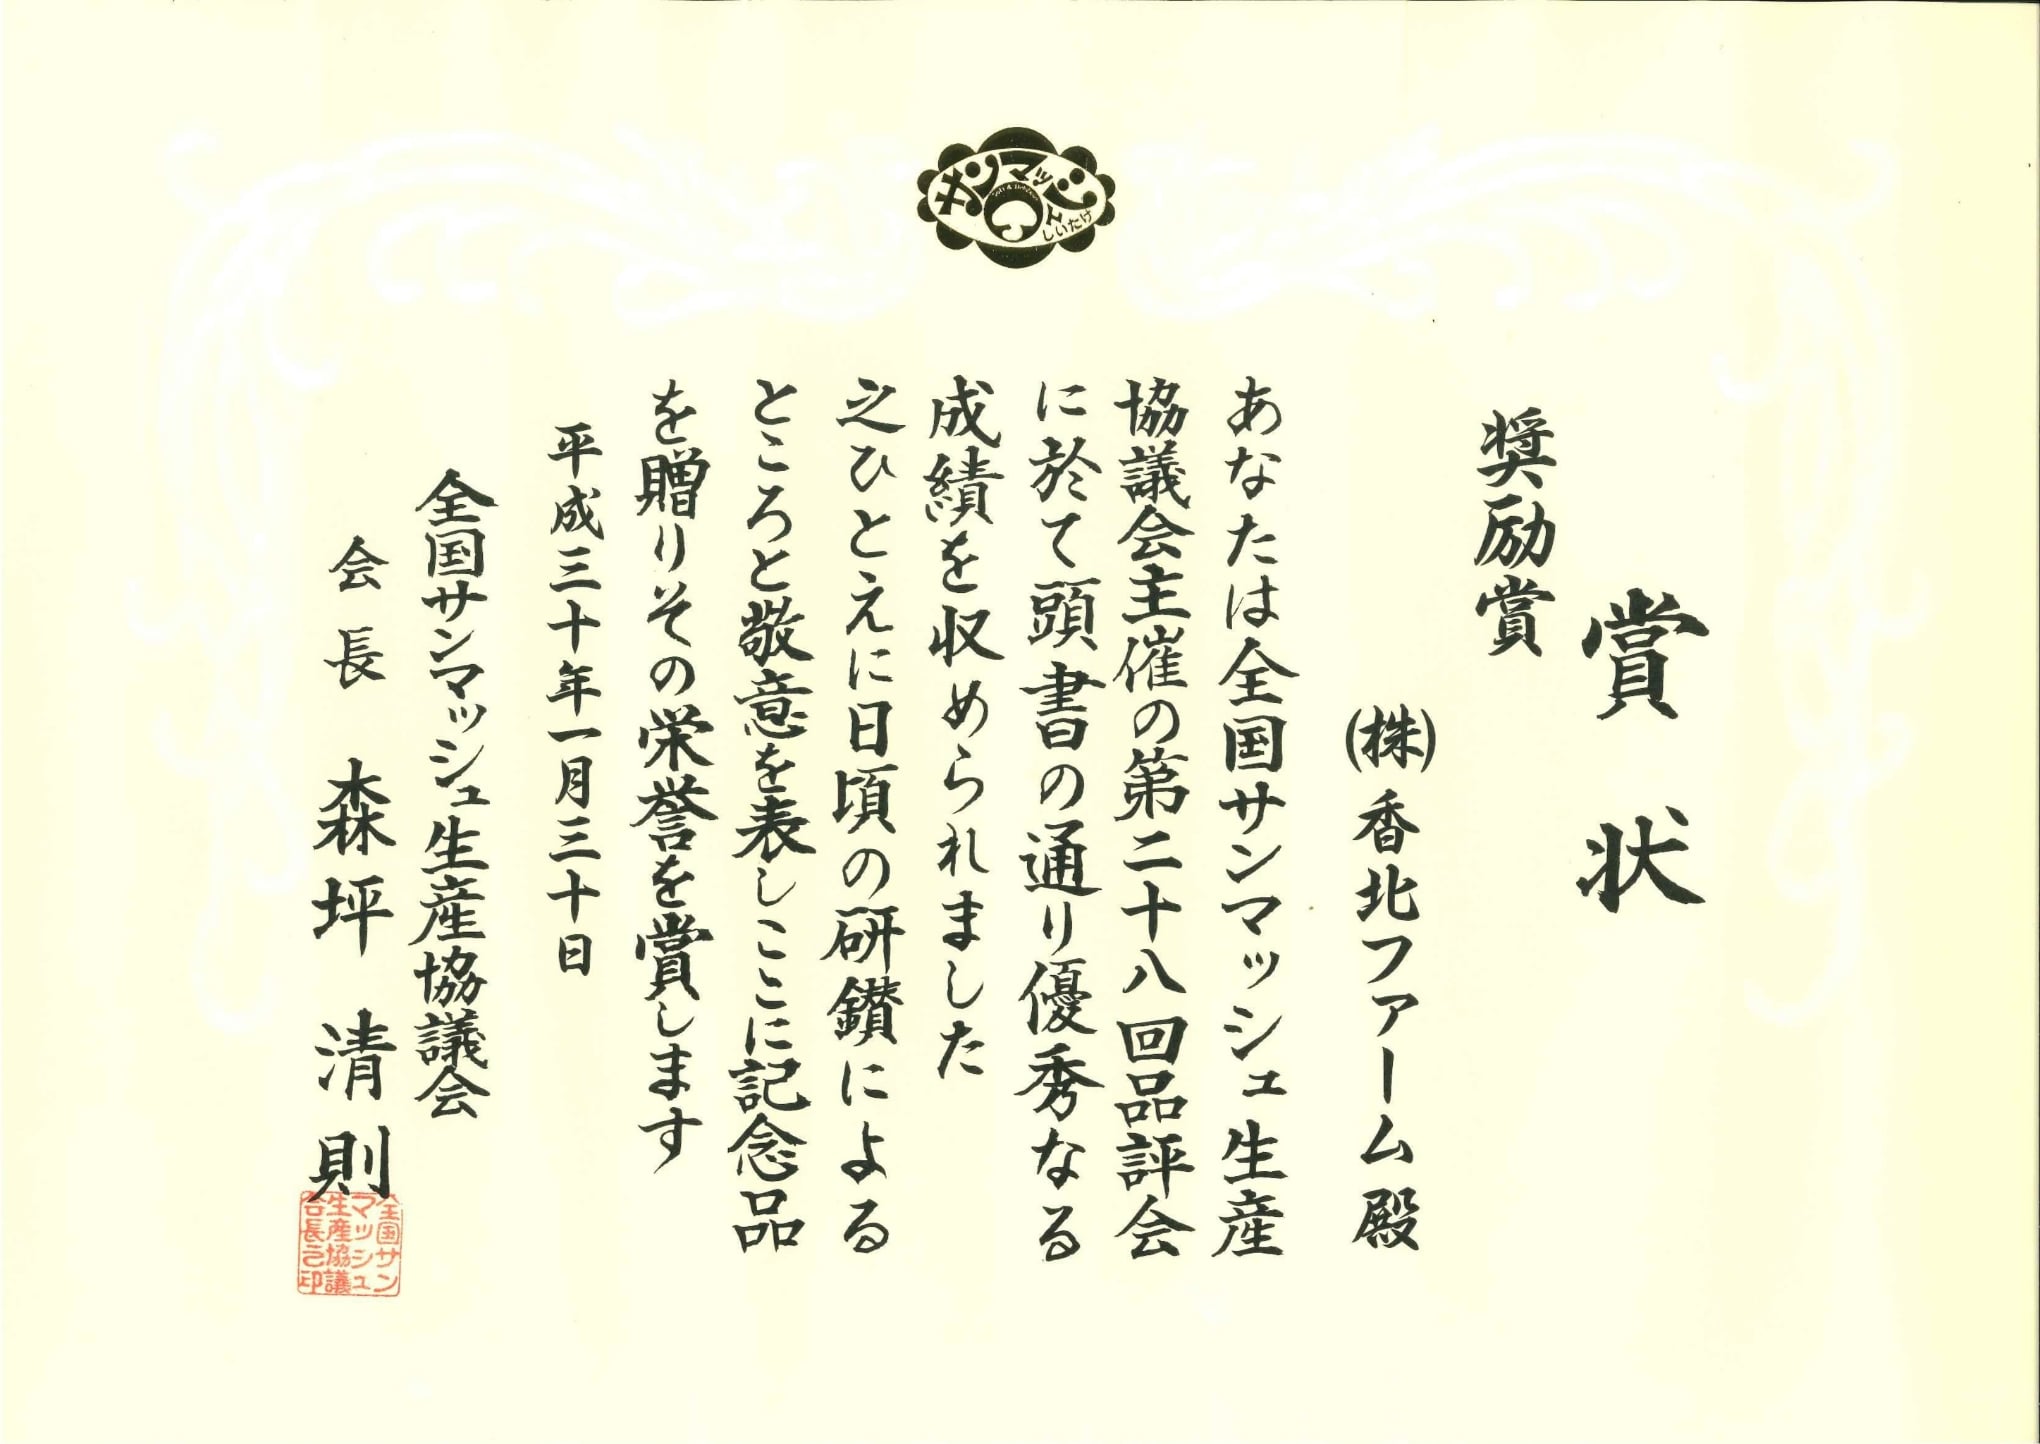 サンマッシュ
しいたけ
賞状
奨励賞
(株)香北ファーム殿
あなたは全国サンマッシュ生産
協議会主催の第二十八回品評会
に於て頭書の通り優秀なる
成績を収められました
之ひとえに日頃の研鑚による
ところと敬意を表しここに記念品
を贈りその栄誉を賞します
平成三十年一月三十日
全国サンマッシュ生産協議会
会長 森坪清則
全国サン
マッシュ
生産協議
会長之印